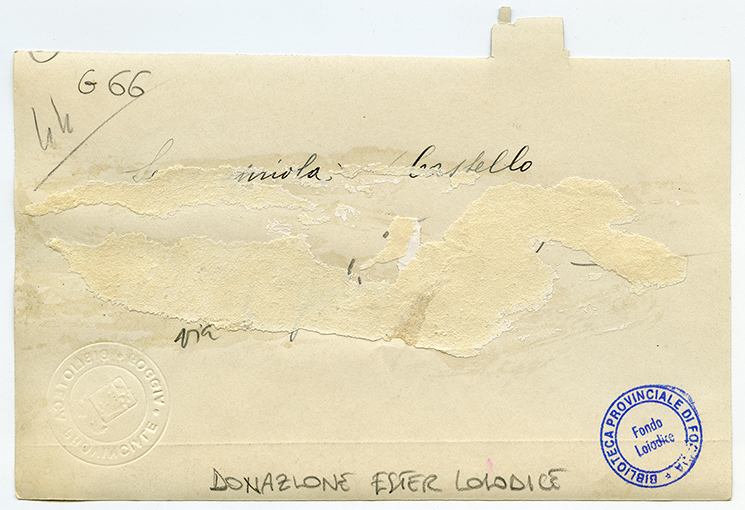 G 66
44
niola: Castello
via
BIBLIOTECA PROVINCIALE DI FOGGIA
Fondo
Loiodice
DONAZIONE ESTER LOIODICE